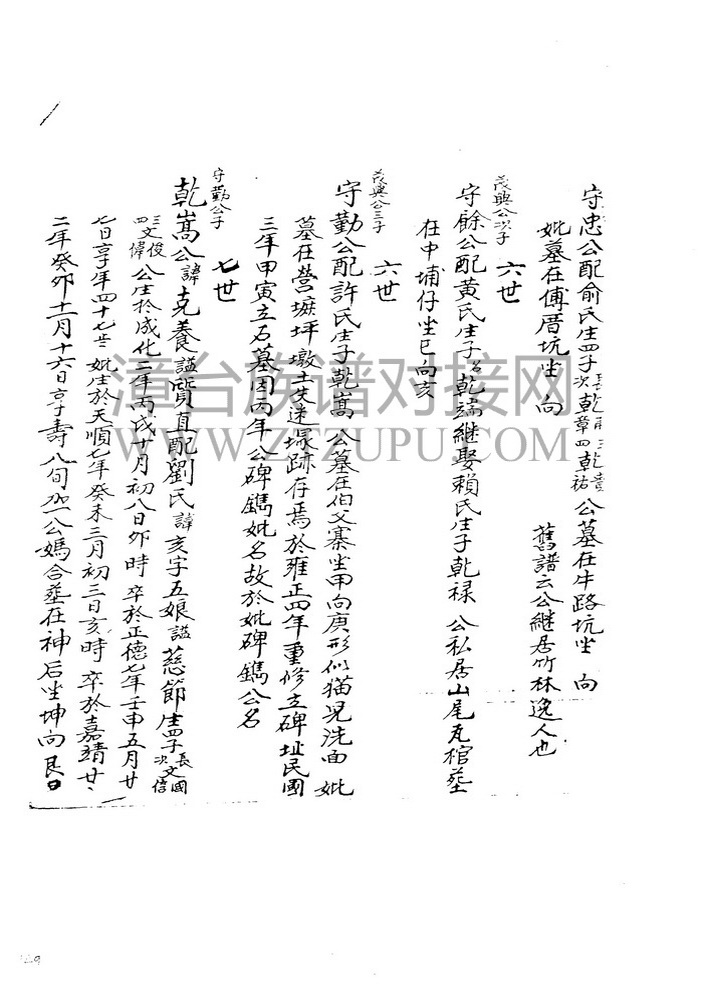 守忠公配俞氏生四子 次乾章四乾祐 公墓在牛路坑坐 向
妣墓在傅厝坑坐 向 舊譜云公継居竹林逸人也
茂興公次子
六世
守餘公配黃氏生子 乾端継娶賴氏生子乾禄 公私居山尾瓦棺葬
在中埔仔坐巳向亥
茂興公三子
六世
守勤公配許氏生子乾嵩 公墓在伯父寨坐甲向庚形似猫児洗面 妣
墓在营 坪墩土失迷塚跡存焉於雍正四年重修立碑址民國
三年甲寅立石墓因丙年公碑鐫妣名故於妣碑鐫公名
守勤公子
七世
乾嵩公諱克養謚質直配劉氏諱亥字五娘謚慈節生四子 長文國 次文信
三文俊 四文偉 公生於成化二年丙戌十月初八日卯時 卒於正德七年壬申五月廿
七日享年四十七 妣生於天順七年癸未三月初三日亥時 卒於嘉靖廿
二年癸卯十二月十六日享壽八旬加一公媽合葬在神后坐坤向艮
漳台族谱对接网
WWW.ZTZUPU.COM